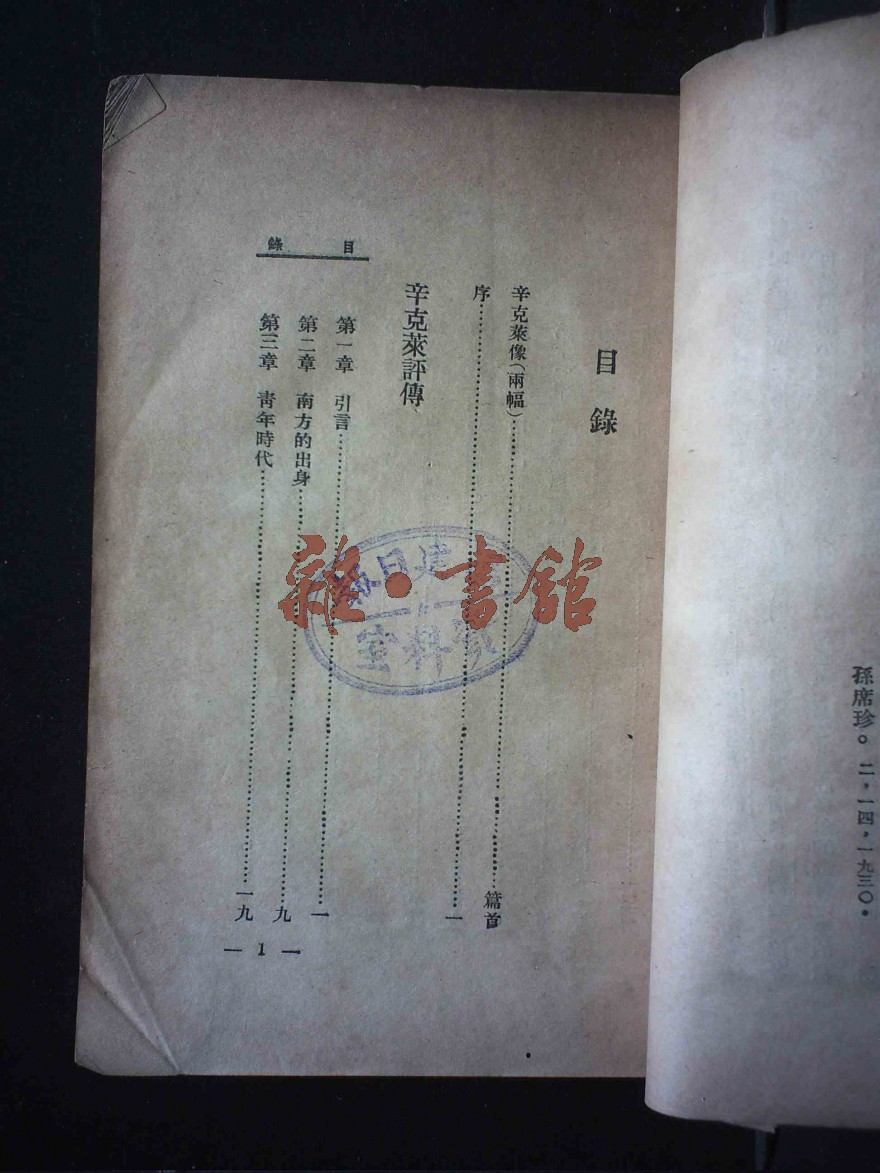 孫席珍。 二，一四，一九三〇。
目錄
辛克萊像（兩幅）……篇首
序……一
辛克萊評傳
第一章 引言……一
第二章 南方的出身……九
第三章 靑年時代……一九
目錄
— 1 —
雜·書館
資料室